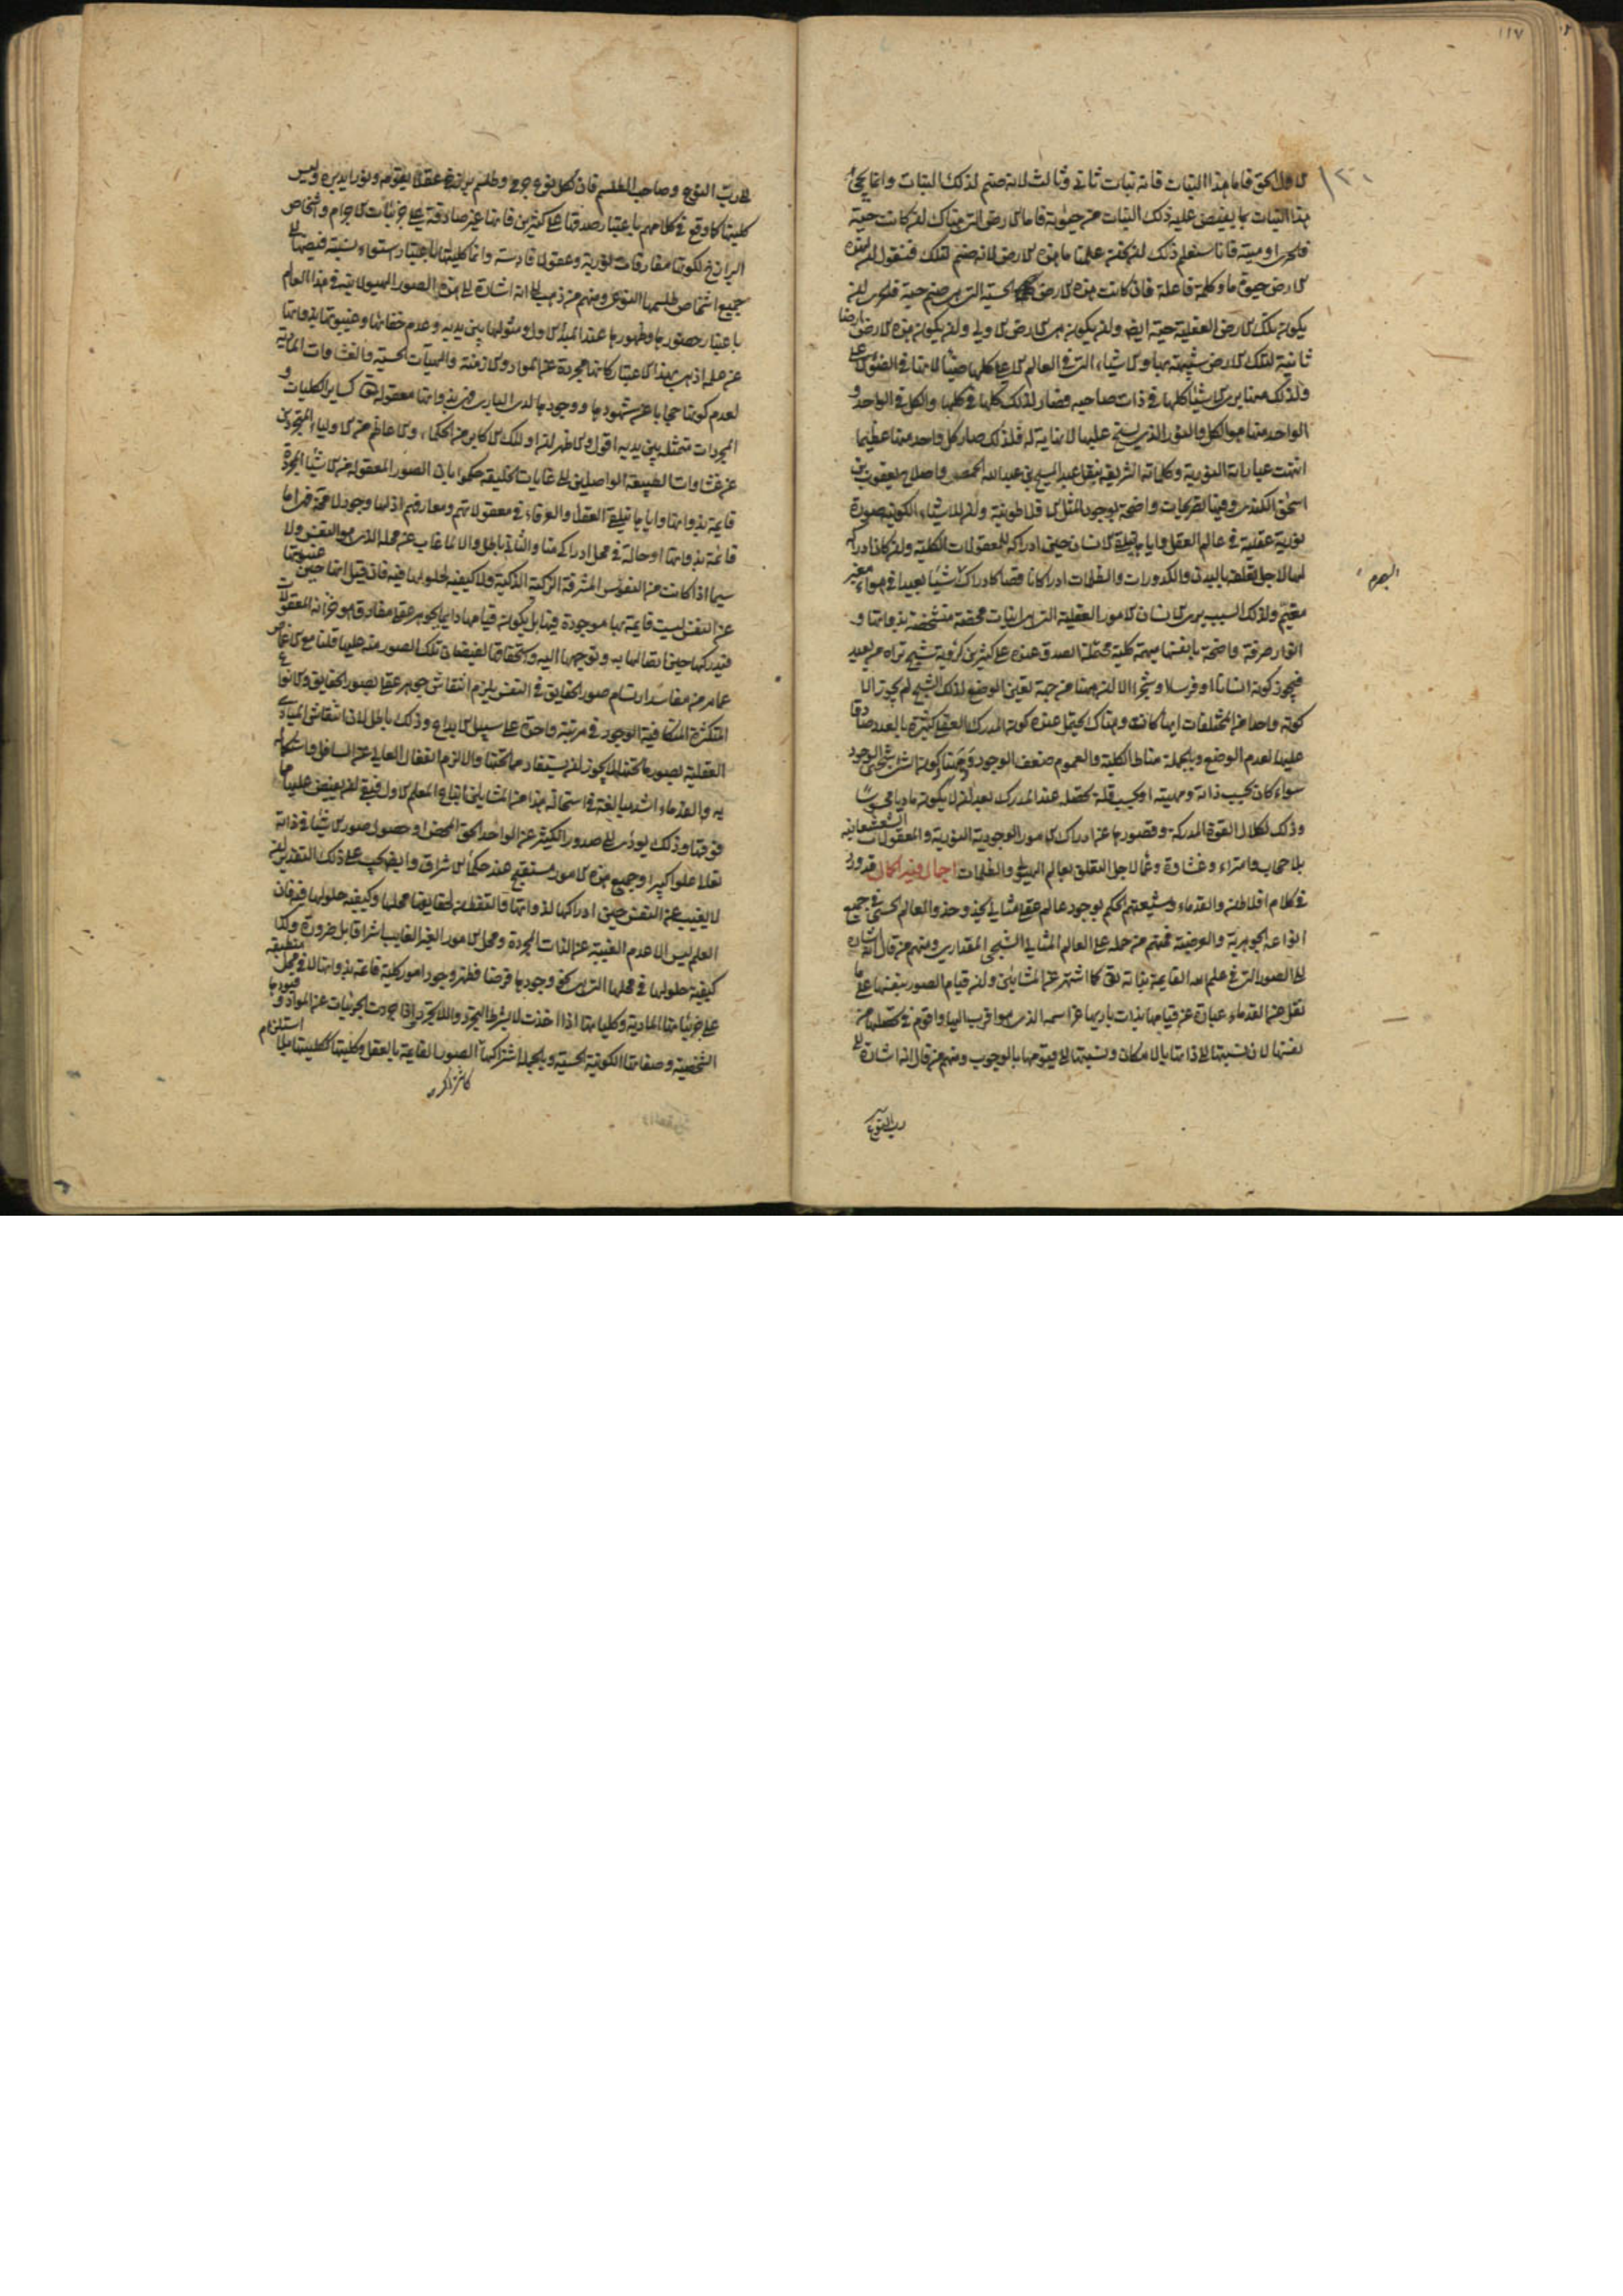 ١١٧
١٢٠
الاول الحق فاما هذا النبات فانه نبات ثاني وثالث لانه صنم لذلك النبات وانما يحيى
هذا النبات بما يفيض عليه ذلك النبات من حيوته فاما الارض التي هناك ان كانت حية
او ميتة فانا سنعلم ذلك ان نحن علمنا ما هذه الارض لانها صنم لتلك فنقول ان لهذه
الارض حيوة ما وكلمة فاعلة فان كانت هذه الارض الحسية التي هي صنم حية فبالحرى ان
يكون تلك الارض العقلية حية ايضا وان يكون هي الارض الاولى وان يكون هذه الارض ارضا
ثانية لتلك الارض شبيهة بها والاشياء التي في العالم الاعلى كلها ضياء لانها في الضوء الاعلى
ولذلك يرى الاشياء كلها في ذات صاحبه فصار لذلك كلها في كلها والكل في الواحد و
الواحد منها هو الكل والنور الذي يسنح عليها لا نهاية له فلذلك صار كل واحد منها عظيما
انتهت عباراته النورية وكلماته الشريفة بنقل عبد المسيح بن عبد الله الحمصي واصلاح يعقوب بن
اسحق الكندي وفيها تصريحات واضحة بوجود المثل الافلاطونية وان للاشياء الكونية صورة
نورية عقلية في عالم العقل واياها يتلقى الانسان حين ادراكه للمعقولات الكلية وان كان ادراكه
لها لاجل تعلقه بالبدن والكدورات والظلمات ادراكا ناقصا كادراك شيئا بعيدا في هواء مغبر
مغيم ولذلك السبب يرى الانسان الامور العقلية التي هي انيات محضة متشخصة بذواتها و
انوار صرفة واضحة بانفسها مبهمة كلية محتملة الصدق عنده على كثيرين كرؤية شبح تراه من بعيد
فيجوز كونه انسانا او فرسا او شجرا الا ان ههنا من جهة تعين الوضع لذلك الشبح لم يجوز الا
كونه واحدا من المختلفات ايها كانت وهناك يحتمل عنده كون المدرك العقلي كثيرة بالعدد صادقا
عليها لعدم الوضع وبالجملة مناط الكلية والعموم ضعف الوجود
سواء كان بحسب ذاته ومهيته او بحسب قلة تحصله عند المدرك بعد ان لا يكون ماديا محسوسا
وذلك لكلال القوة المدركة وقصورها عن ادراك الامور الوجودية النورية والمعقولات الشعشعانية
بلا حجاب وامتراء وغشاوة وعماء لاجل التعلق بعالم الهيولى والظلمات اجمال فيه اكمال قد ورد
في كلام افلاطن والقدماء وشيعتهم الحكم بوجود عالم عقلي مثالي يحذو حذو العالم الحسي في جميع
انواعه الجوهرية والعرضية فمنهم من حمله على العالم المثالي الشبحي المقداري ومنهم من قال انه اشارة
الى الصور التي في علم الله القائمة بذاته تعالى كما اشتهر عن المشائين وان قيام الصور بنفسها على ما
نقل عن القدماء عبارة عن قيامها بذات باريها عز اسمه الذي هو اقرب اليها واقوم في تحصلها من
نفسها لان نسبتها الى ذاتها بالامكان ونسبتها الى قيومها بالوجوب ومنهم من قال انه اشارة الى
رب النوع
الى رب النوع وصاحب الطلسم فان لكل نوع جرمي وطلسم برزخي عقلا يقومه ونورا يدبره وليس
كليتها كما وقع في كلامهم باعتبار صدقها على كثيرين فانها غير صادقة على جزئيات الاجرام واشخاص
البرازخ لكونها مفارقات نورية وعقولا قادسة وانما كليتها باعتبار استواء نسبة فيضها الى
جميع اشخاص طلسمها النوعي ومنهم من ذهب الى انه اشارة الى هذه الصور الهيولانية في هذا العالم
باعتبار حضورها وظهورها عند المبدأ الاول ومثولها بين يديه وعدم خفائها وغيبوبتها بذواتها
عن علمه اذ هي بهذا الاعتبار كانها مجردة عن المواد والازمنة والهيآت الحسية والغشاوات المادية
لعدم كونها حجابا عن شهودها ووجودها لدى الباري فهي بذواتها معقولة له تعالى كساير الكليات و
المجردات متمثل بين يديه اقول والاظهر ان اولئك الاكابر من الحكماء والاعاظم من الاولياء المتجردين
عن غشاوات الطبيعة الواصلين الى غايات الخليقة حكموا بان الصور المعقولة من الاشياء المجردة
قايمة بذواتها واياها يتلقى العقلاء والعرفاء في معقولاتهم ومعارفهم اذ لها وجود لا محة فهي اما
قائمة بذواتها او حالة في محل ادراكي منا والثاني باطل والا لما غاب عن محله الذي هو النفس ولا
سيما اذا كانت من النفوس المشرقة الزكية الذكية ولا كيفية حلولها فيه فان قيل انها حين غيبوبتها
عن النفس ليست قايمة بها موجودة فيها بل يكون قيامها دايما بجوهر عقلي مفارق هو خزانة المعقولات
فتدركها حين اتصالها به وتوجهها اليه واستحقاقها لفيضان تلك الصور منه عليها قلنا مع الاغماض
عما مر من مفاسد ارتسام صور الحقايق في النفس يلزم انتقاش جوهر عقلي بصور الحقايق والانواع
المتكثرة المتكافية الوجود في مرتبة واحدة على سبيل الابداع وذلك باطل لان انتقاش المبادي
العقلية بصور ما تحتها لا يجوز ان يستفاد مما تحتها والا لزم انفعال العالي عن السافل واستكماله
به والقدماء اشد مبالغة في استحالة هذا من المشايين اتباع المعلم الاول فبقي ان يفيض عليها مما
فوقها وذلك يؤدي الى صدور الكثير عن الواحد الحق المحض او حصول صور الاشياء في ذاته
تعالى علوا كبيرا وجميع هذه الامور مستقبح عند حكماء الاشراق وايضا يجب على ذلك التقدير ان
لا يغيب عن النفس حين ادراكها لذواتها والتفطن لحقايقها محلها وكيفية حلولها فيه فان
العلم ليس الا عدم الغيبة عن الذات المجردة ومحل الامور الغير الغايب اشراقا بل ضرورة وكذا
كيفية حلولها في محلها التي هي نحو وجودها فرضا فظهر وجود امور كلية قائمة بذواتها لا في محل منطبقة
على جزئياتها المادية وكليتها اذا اخذت لا بشرط التجرد واللاتجرد واذا جردت الجزئيات عن المواد وقيودها
الشخصية وصفاتها الكونية الحسية وبالجملة اشتراكها الصور القايمة بالعقل وكليتها ككليتها بلا استلزام